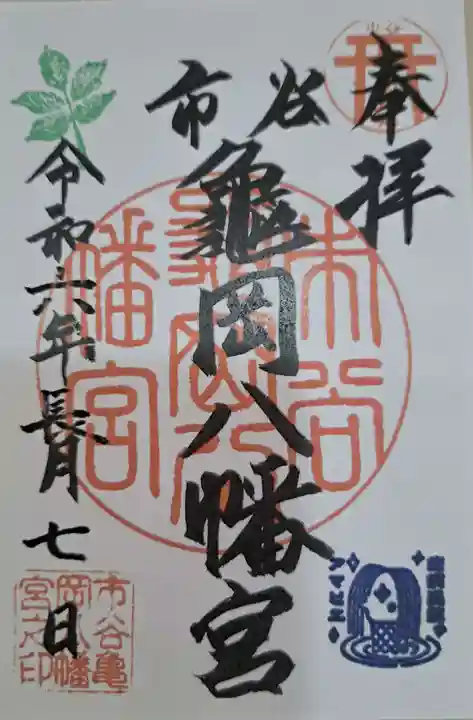 奉拝
市谷
龜岡八幡宮
令和六年長月七日
市谷
亀岡八
幡宮
市谷亀
岡八幡
宮之印
アマビエ